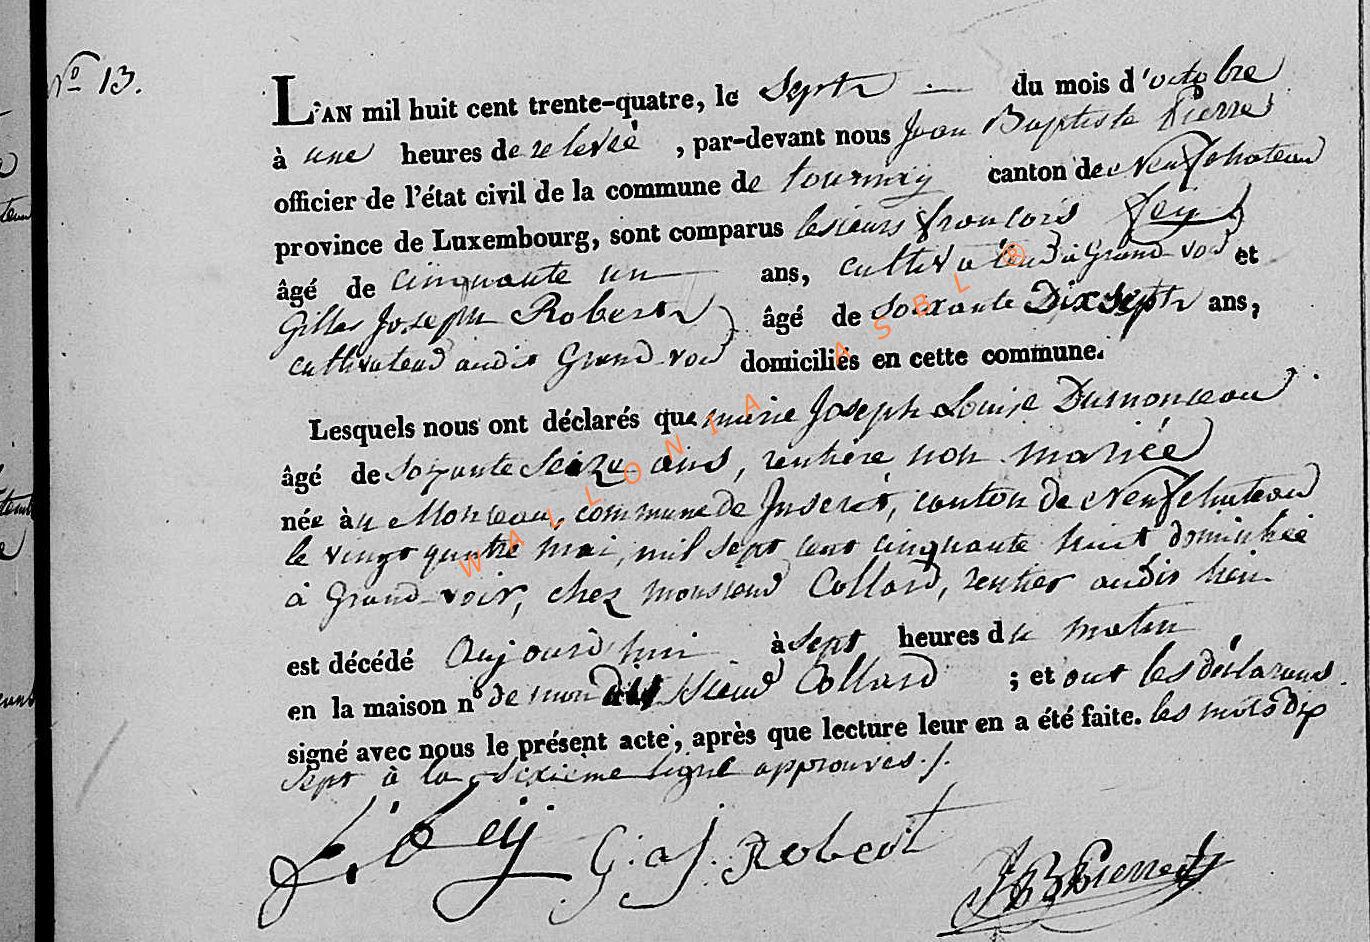 No 13.
L'AN mil huit cent trente-quatre, le sept — du mois d'octobre
à une heures de relevée, par-devant nous Jean Baptiste Pierret
officier de l'état civil de la commune de tournay canton de Neufchateau
province de Luxembourg, sont comparus les sieurs françois
âgé de cinquante un ans, cultivateur à Grand-voir et
Gilles Joseph Robert âgé de soixante Dix sept ans,
cultivateur audit Grand-voir domiciliés en cette commune.
Lesquels nous ont déclarés que marie Joseph Louise Dumonceau
âgé de soixante seize ans, rentière non mariée
née à Monceau, commune de Juseret, canton de Neufchateau
le vingt quatre mai, mil sept cent cinquante huit domiciliée
à Grand-voir, chez monsieur Collard, rentier audit lieu
est décédé aujourd'hui à sept heures du matin
en la maison no de mon dit sieur Collard ; et ont les déclarans
signé avec nous le présent acte, après que lecture leur en a été faite. les mots dix
sept à la sixième ligne approuvés./.
G. J. Robert
JB Pierret
WALLONIA ASBL ®